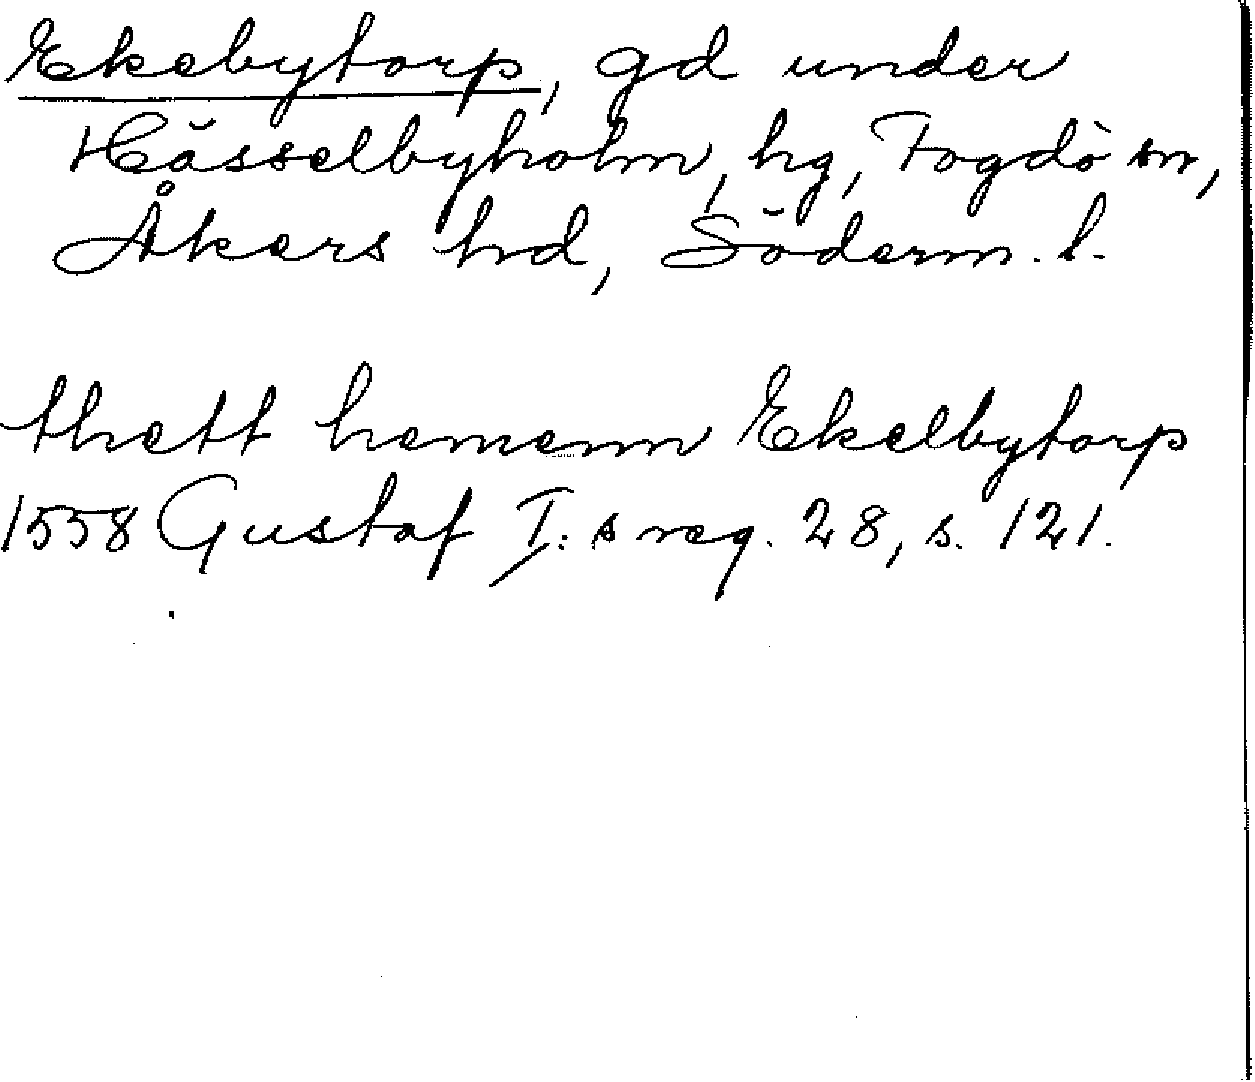 Ekebytorp, gd under
Hässelbyholm, hg, Fogdö sn,
Åkers hd, Söderm. l.
thett hemenn Ekelbytorp
1558 Gustaf I:s reg. 28, s. 121.